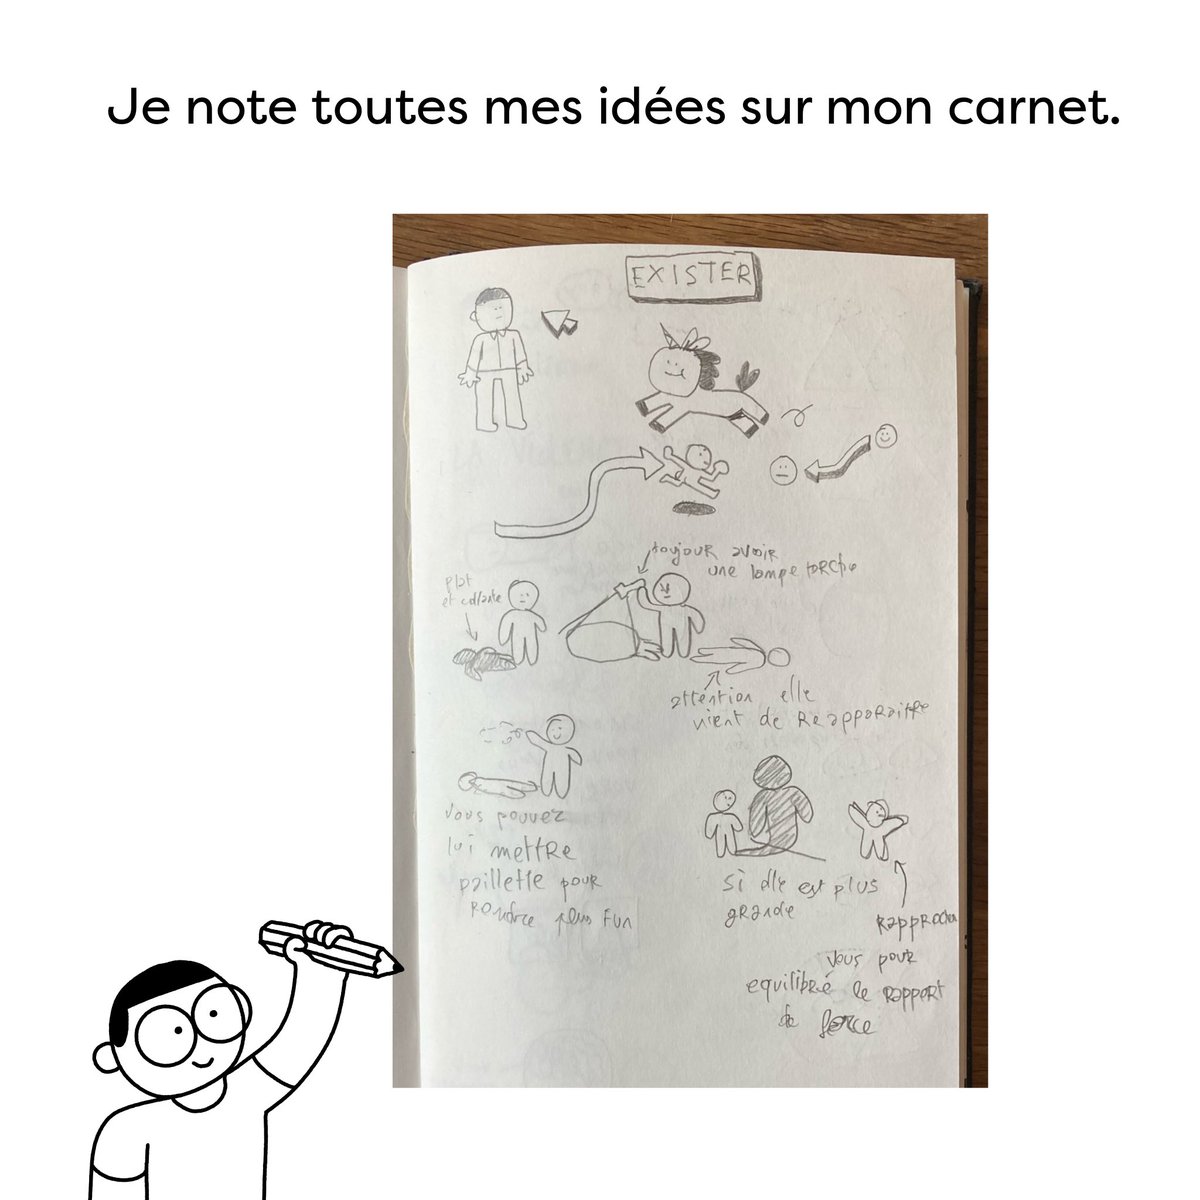 Je note toutes mes idées sur mon carnet.
EXISTER
toujour avoir
une lampe torche
plat
et collante
attention elle
vient de Reapparaitre
vous pouvez
lui mettre
paillette pour
Rendre plus Fun
si elle est plus
grande
Rapprocher
vous pour
equilibré le rapport
de force